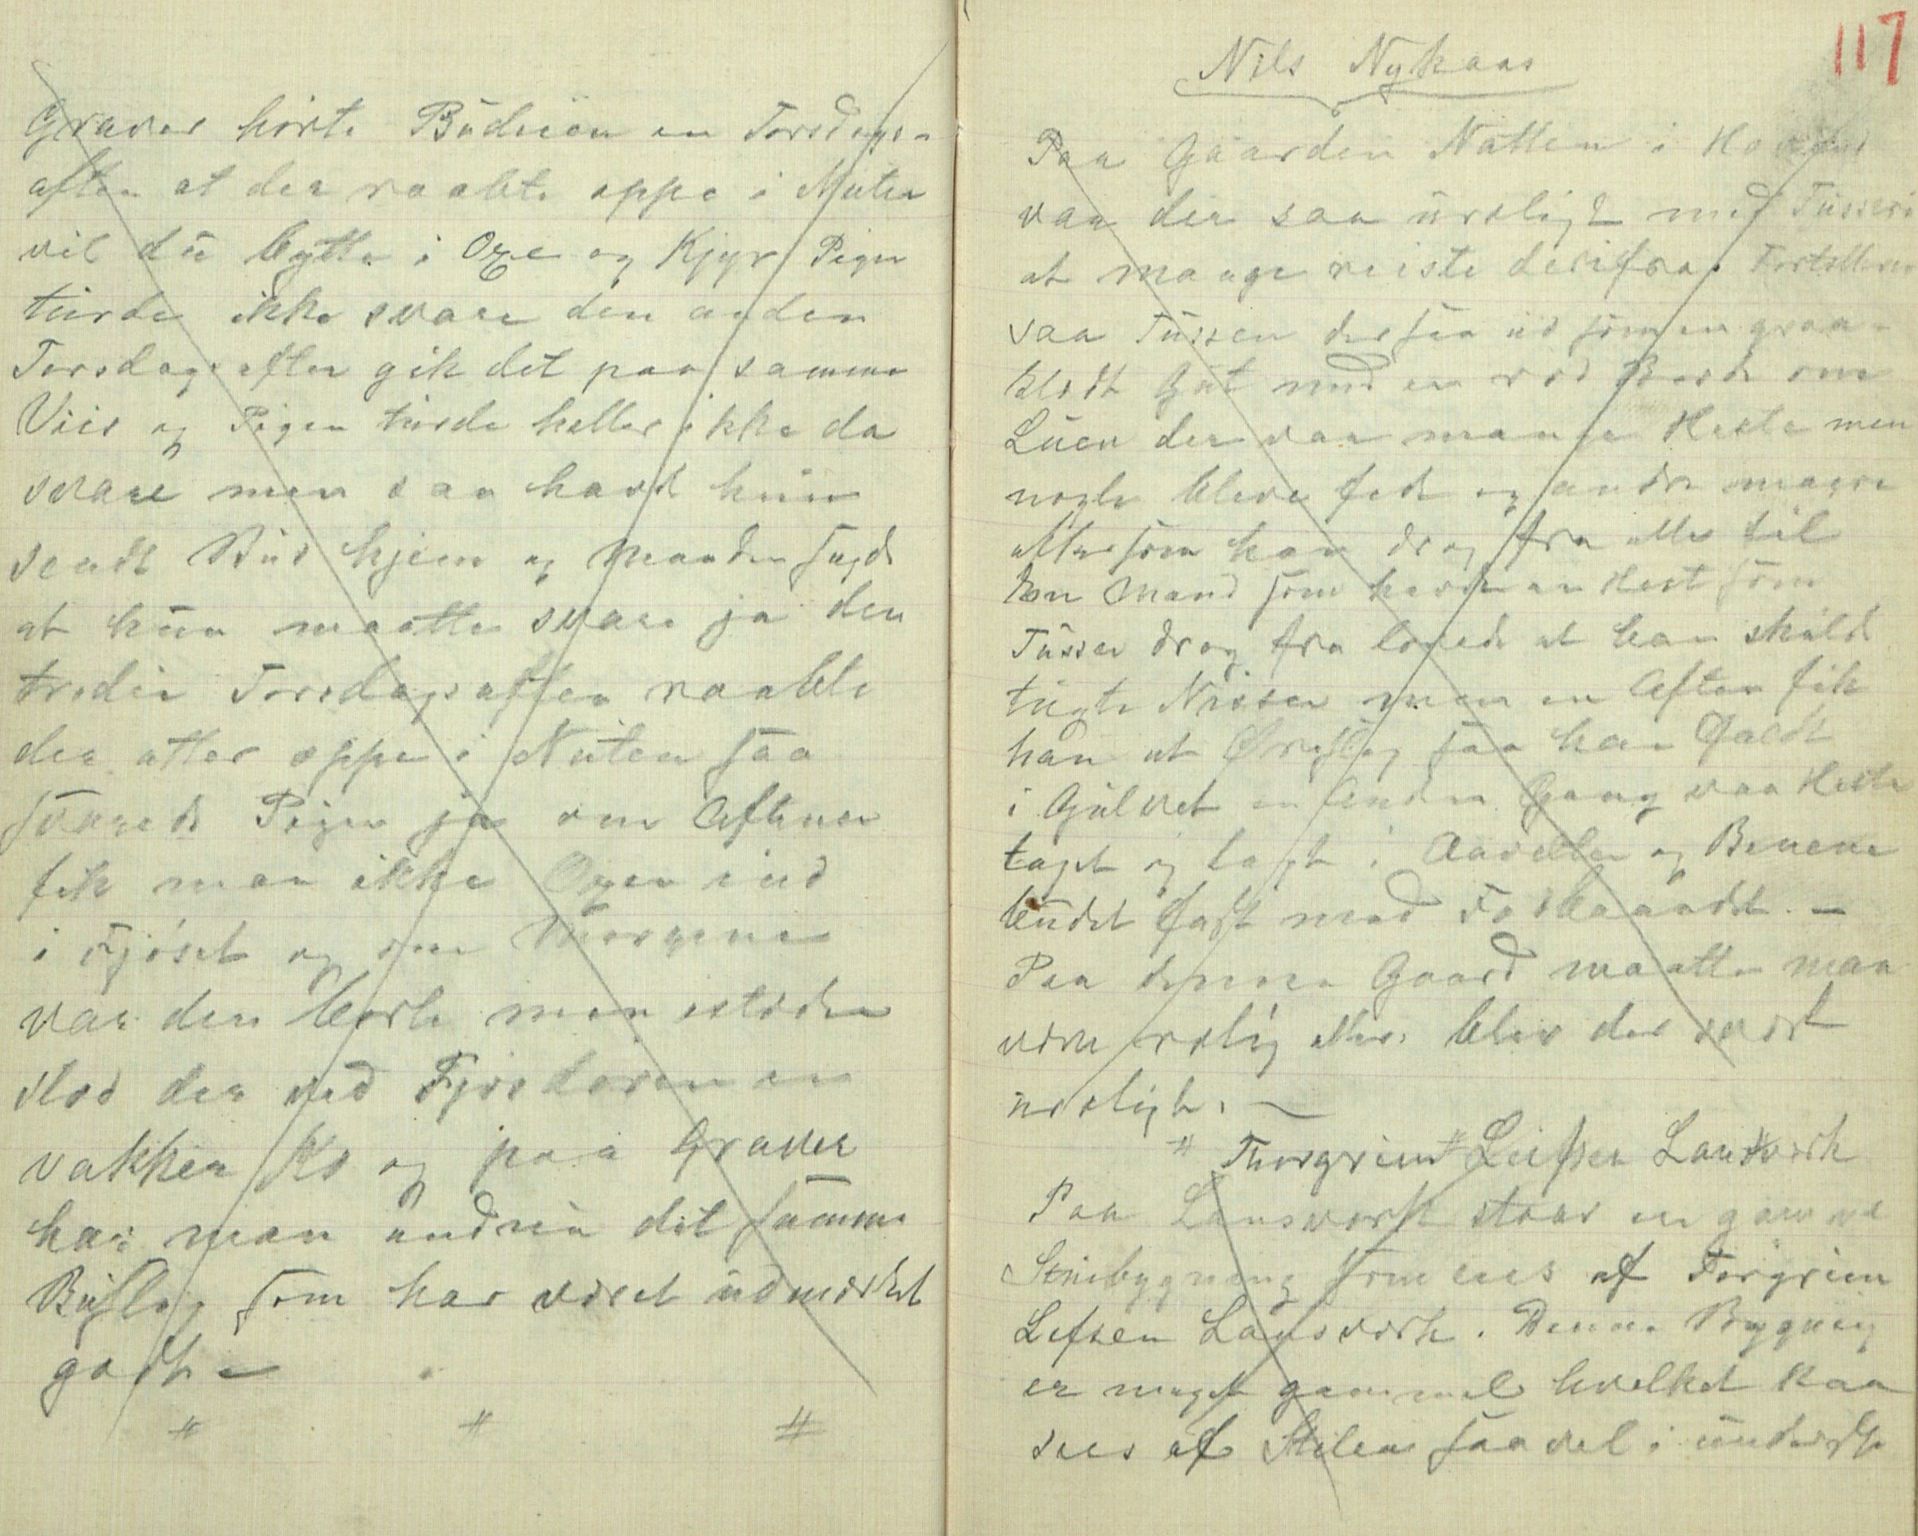 Graver hörte Büdeien en Torsdags-
aften at der raabte oppe i Nuten
vil dü bytte i Oxe og Kjyr Pigen
türde ikke svare den anden
Torsdagsaften gik det paa samme
Viis og Pigen türde heller ikke da
svare men saa havd hün
sendt Büd hjem og Manden sagde
at hün maatte svare ja den
tredie Torsdagsaften raabte
der atter oppe i Nüten saa
svarede Pigen ja om Aftenen
fik man ikke Oxen ind
i Fjöset og om Morgenen
var den borte men isteden
stod der ved Fjösdören en
vakker Ko og paa Graver
har man endnü det samme
Büslag som har været üdmærket
godt –
" " "
117
Nils Nykaas
Paa Gaarden Natten i Hovin
var der saa üroligt med Tüsseri
at mange reiste derifra. Fortelleren
saa Tüssen der saa üd som en graa-
klædt Gut med en rød Bord om
Lüen der var mange Heste men
nogle bleve fede og andre magre
ettersom han drog fra eller til
En Mand som havde en Hest som
Tüssen drog fra lovede at han skülde
tügte Nissen men en Aften fik
han et Ørefig saa han faldt
i Gülvet en Anden Gang var Hesten
taget og lagt i og Benene
bündet fast med
Paa denne Gaard maatte man
være rolig ellers blev der svært
üroligt. —
" Thorgrim Leifsen Landsverk
Paa Lansverk staar en gammel
Steinbygning som eies af Torgrim
Lefsen Lansverk. Denne Bygning
er meget gammel hvelket kan
sees af Stilen saavel i